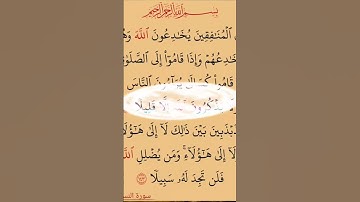 بِسْمِ ٱللَّهِ ٱلرَّحْمَـٰنِ ٱلرَّحِيمِ
ٱلْمُنَـٰفِقِينَ يُخَـٰدِعُونَ ٱللَّهَ وَهُ
خَـٰدِعُهُمْ وَإِذَا قَامُوٓا۟ إِلَى ٱلصَّلَوٰ
قَامُوا۟ كُسَالَىٰ يُرَآءُونَ ٱلنَّاسَ
إِلَّا قَلِيلًا
ذَبْذَبِينَ بَيْنَ ذَٰلِكَ لَآ إِلَىٰ هَـٰٓؤُلَآ
لَآ إِلَىٰ هَـٰٓؤُلَآءِ ۚ وَمَن يُضْلِلِ ٱللَّ
فَلَن تَجِدَ لَهُۥ سَبِيلًا ١٤٣
سورة النس